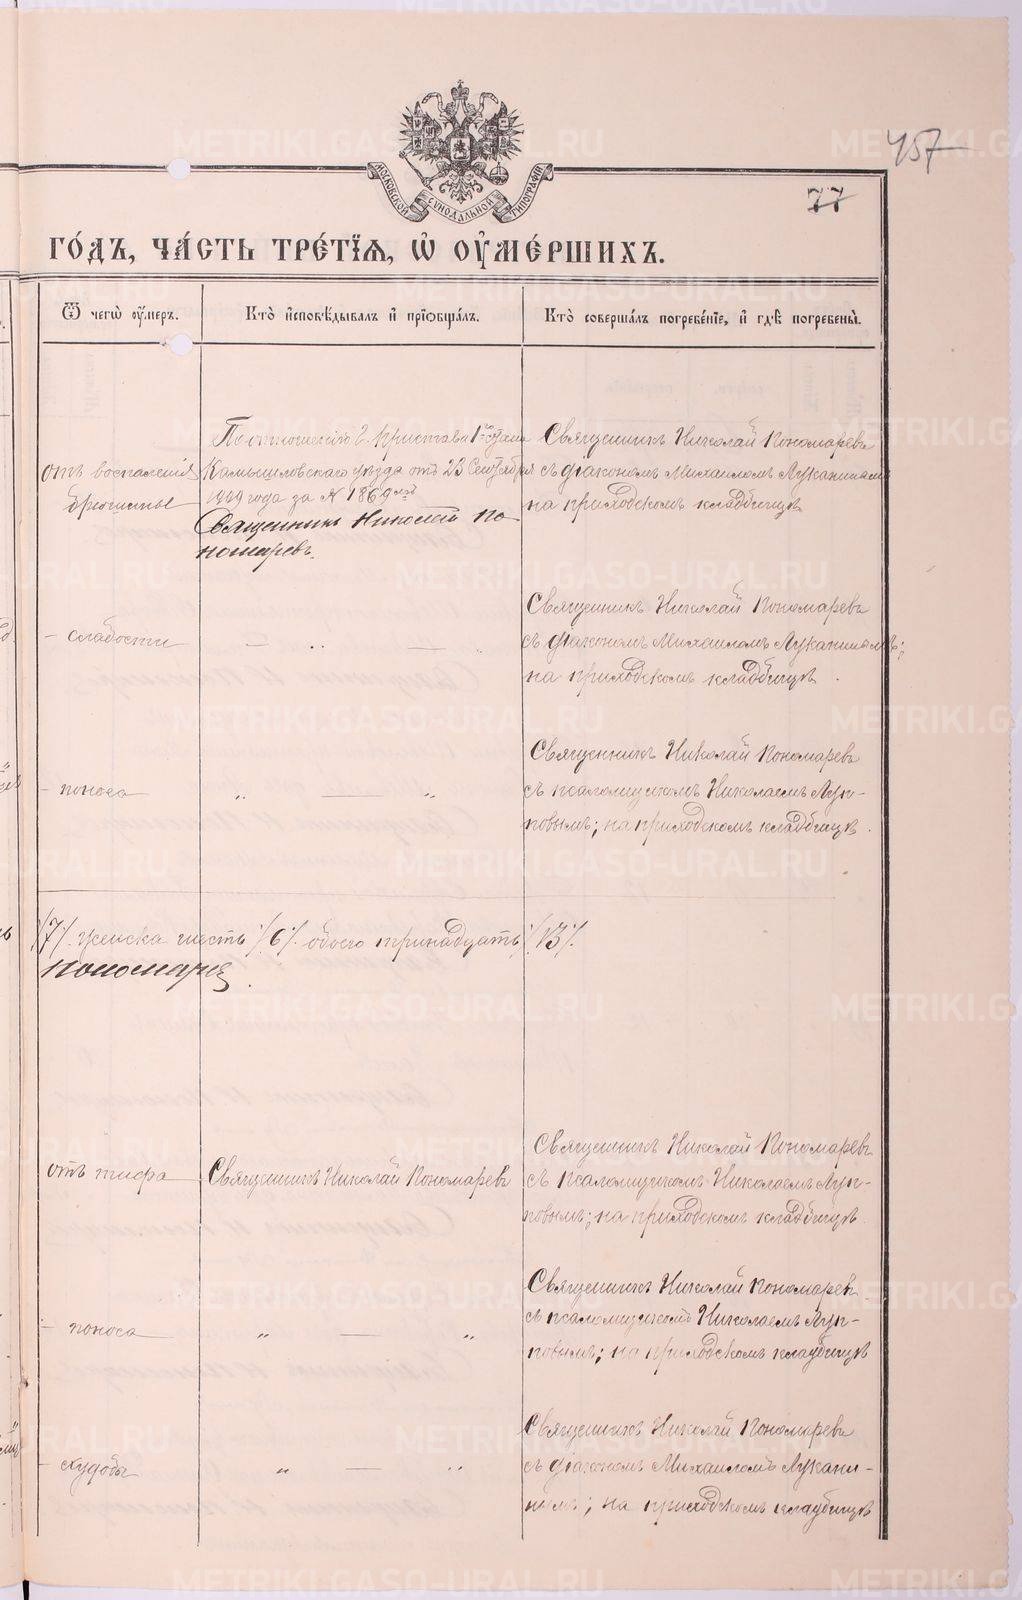 457
77
МОСКОВСКОЙ СѴНОДАЛЬНОЙ ТИПОГРАФІИ
ГО́ДЪ, ЧА́СТЬ ТРЕ́ТІѦ, Ѡ҆ ОУ҆МЕ́РШИХЪ.
Ѿ чегѡ̀ оу҆́меръ.
Кто̀ и҆сповѣ́дывалъ и҆ прїѡбща́лъ.
Кто̀ соверша́лъ погребе́нїе, и҆ гдѣ̀ погребены̀.
отъ воспаления
брюшины
По отношению г. Пристава 1го стана
Камышловскаго уѣзда отъ 23 Сентября
1909 года за № 1869мъ
Священникъ Николай По-
номаревъ.
Священникъ Николай Пономаревъ
съ діакономъ Михаиломъ Луканинымъ
на приходскомъ кладбищѣ
- слабости
— „ — „
Священникъ Николай Пономаревъ
съ діакономъ Михаиломъ Луканинымъ;
на приходскомъ кладбищѣ.
- поноса
„ — „
Священникъ Николай Пономаревъ
съ псаломщикомъ Николаемъ Луп-
повымъ; на приходскомъ кладбищѣ.
/7/. женска шесть /6/. обоего тринадцать /13/.
Пономаре
отъ тифа
Священникъ Николай Пономаревъ
Священникъ Николай Пономаревъ
съ псаломщикомъ Николаемъ Луп-
повымъ; на приходскомъ кладбищѣ.
- поноса
„ — „
Священникъ Николай Пономаревъ
съ псаломщикомъ Николаемъ Луп-
повымъ; на приходскомъ кладбищѣ
- худобы
„ — „
Священникъ Николай Пономаревъ
съ діакономъ Михаиломъ Лукани-
нымъ; на приходскомъ кладбищѣ
METRIKI.GASO-URAL.RU